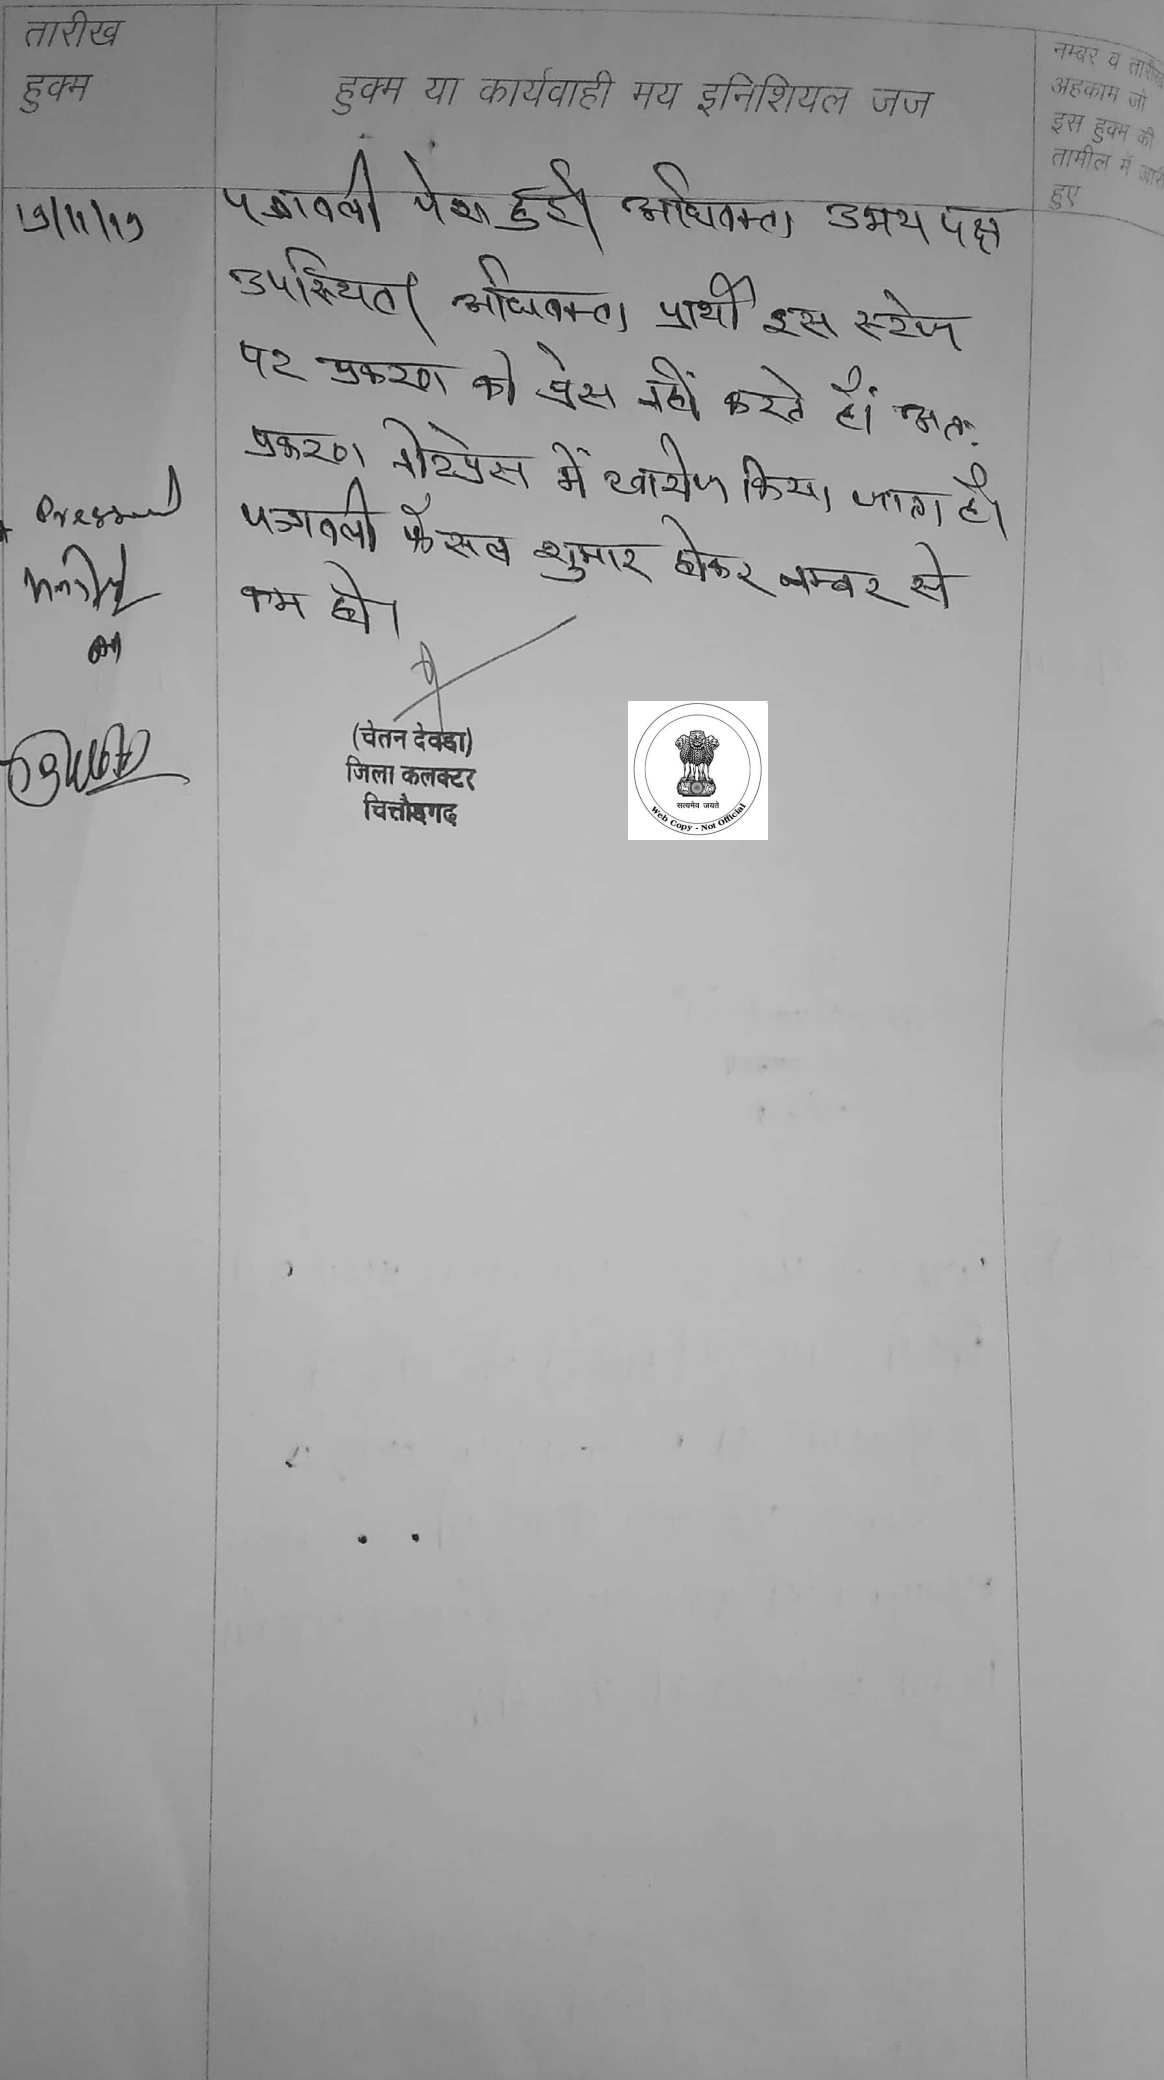 तारीख
हुक्म
हुक्म या कार्यवाही मय इनिशियल जज
नम्बर व तारीख
अहकाम जो
इस हुक्म की
तामील में जारी
हुए
19/11/19
पत्रावली पेश हुई। अधिवक्ता उभय पक्ष
उपस्थित। अधिवक्ता प्रार्थी इस स्टेज
पर प्रकरण को प्रेस नहीं करते हैं। अतः
प्रकरण नोटप्रेस में खारीज किया जाता है।
पत्रावली फैसल शुमार होकर नम्बर से
कम हो।
(चेतन देवड़ा)
जिला कलक्टर
चित्तौड़गढ़
सत्यमेव जयते
Web Copy - Not Official